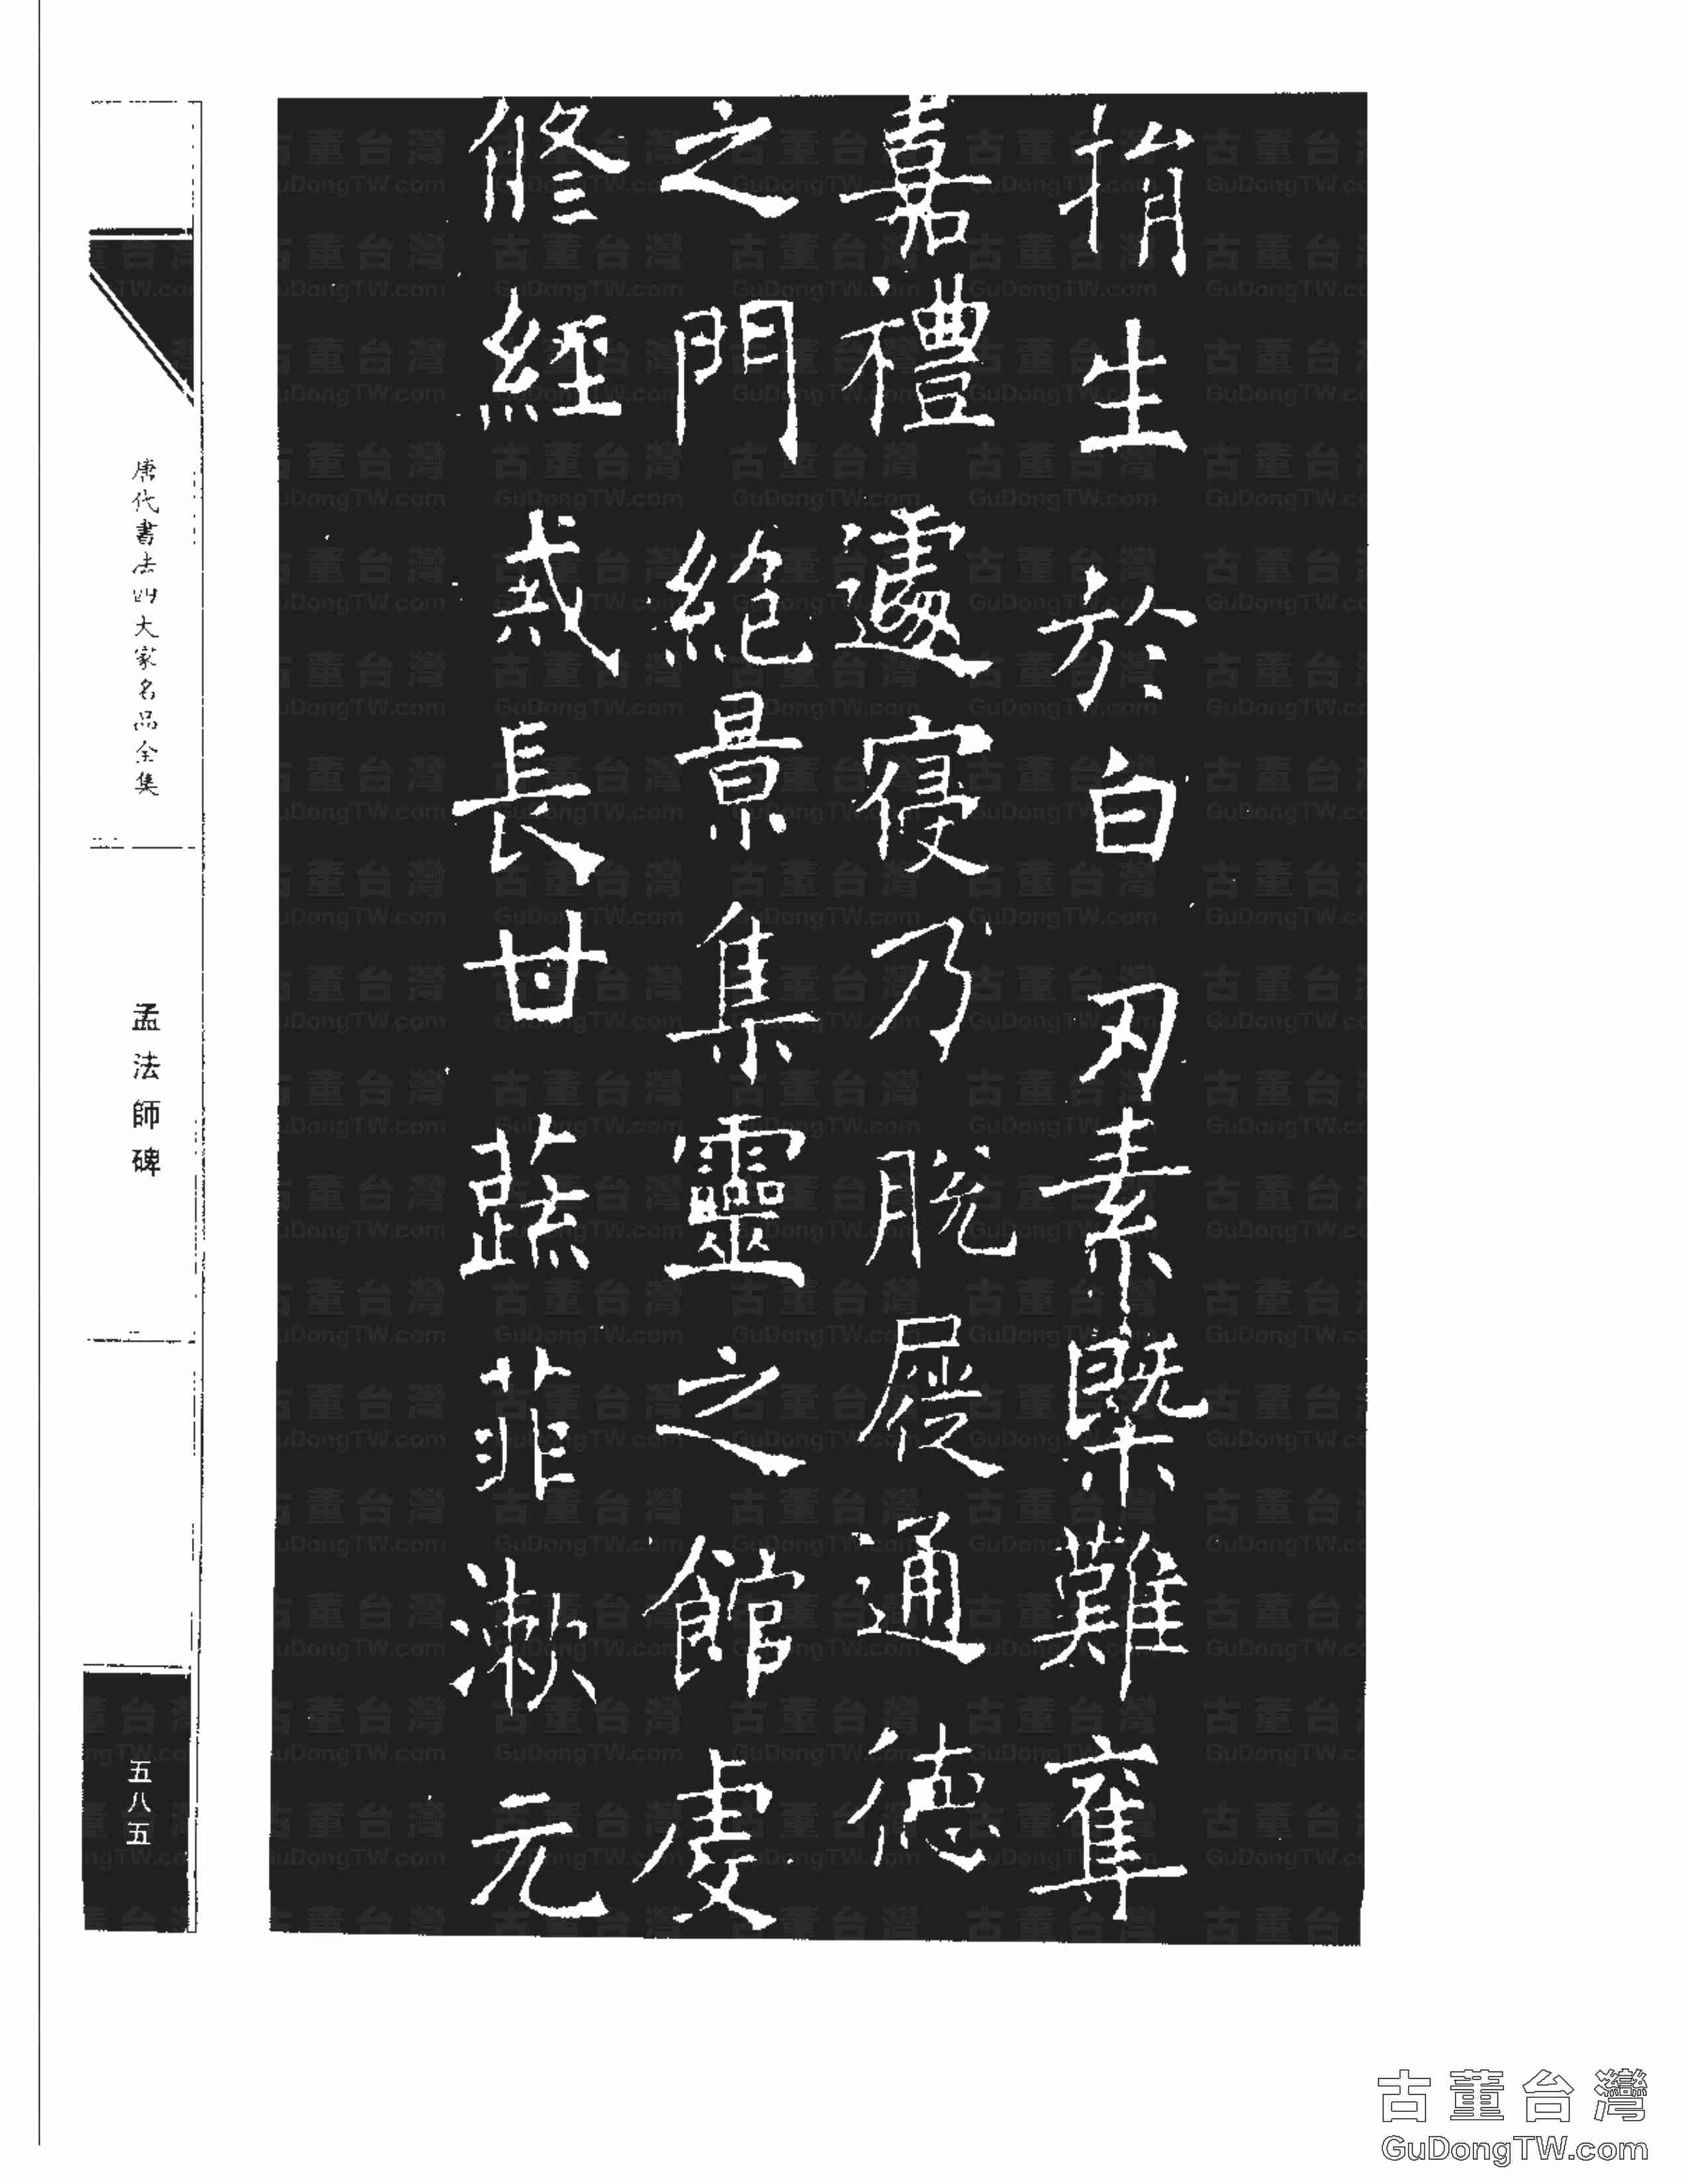 捐生於白刃素槩難奪
嘉禮遽寑乃脫屣通德
之門絕景集靈之館虔
修經戒長甘蔬菲漱元
唐代書法四大家名品全集
孟法師碑
五八五
古董台灣
GuDongTW.com